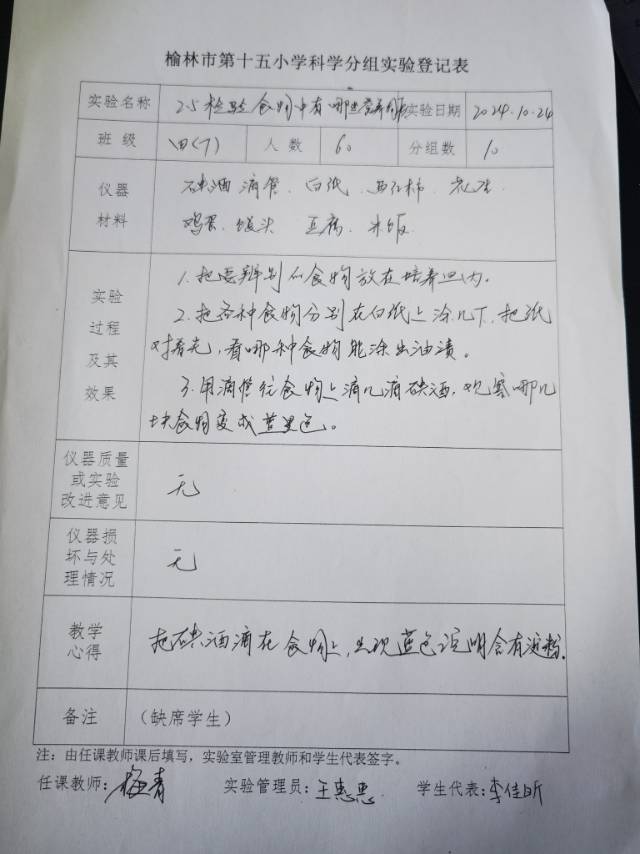 榆林市第十五小学科学分组实验登记表
实验名称 2.5 检验食物中有哪些营养 实验日期 2024.10.24
班级 四(7) 人数 60 分组数 10
仪器 碘酒 滴管、白纸、西红柿、花生
材料 鸡蛋、馒头 豆腐、米饭
实验 1.把要辨别的食物放在培养皿内。
过程 2.把各种食物分别在白纸上涂几下,把纸
及其 对着光,看哪种食物能涂出油渍。
效果 3.用滴管往食物上滴几滴碘酒,观察哪几
块食物变成蓝黑色。
仪器质量
或实验
改进意见 无
仪器损
坏与处
理情况 无
教学
心得 把碘酒滴在食物上,出现蓝色说明含有淀粉.
备注 (缺席学生)
注:由任课教师课后填写,实验室管理教师和学生代表签字。
任课教师: 梅青 实验管理员: 王惠思 学生代表: 李佳昕